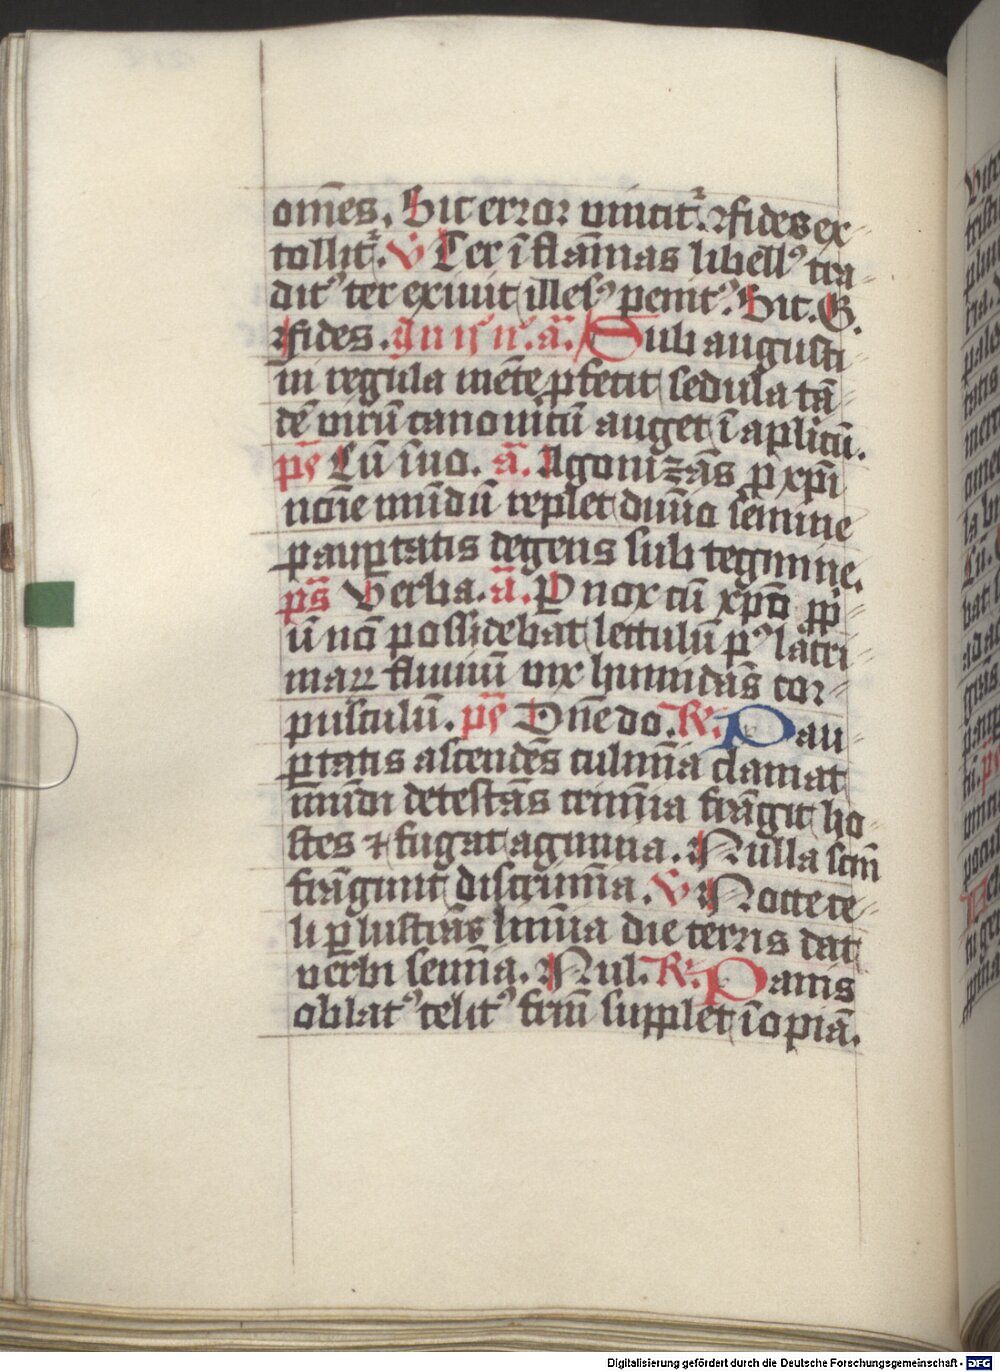 om̄es. Sic error vincit᷑ ⁊ fides ex
tollit᷑. V Ter ī flām̄as libellꝰ tra
ditꝰ ter exiuit illesꝰ penitꝰ. Sic. G.
⁊ fides. In ıȷ n°. a̅. Sub augusti
ni regula mēte ꝓfecit sedula tā
dē virū canonicū auget ī aplicū.
p̄s Cū īuo. a̅. Agonizās ꝓ xp̄i
noīe mūdū replet diuīo semine
paupꝑtatis degens sub tegmine.
p̄s Verba. a̅. Pnox cū xp̄o ꝓpͥ
ū nō possidebat lectulū pꝰ lacri
maꝝ fluuiū vix humidās cor
pusculū. p̄s Dn̄e do. R. Pau
ꝑtatis ascendēs culmīa clamat
mūdi detestās crimīa frāgit ho
stes ⁊ fugat agmina. Nulla scm̄
frāgunt discrimīa. V Nocte ce
li ꝑlustrās lumīa die terris dat
verbi semīa. Nul. R. Panis
oblatꝰ celitꝰ frm̄ supplet īopiā.
Digitalisierung gefördert durch die Deutsche Forschungsgemeinschaft - DFG